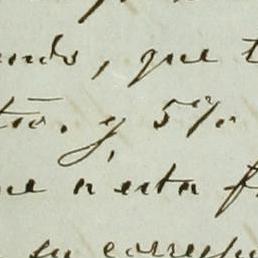 endo, que t
tro. y 5%
ue a esta f
su corresp